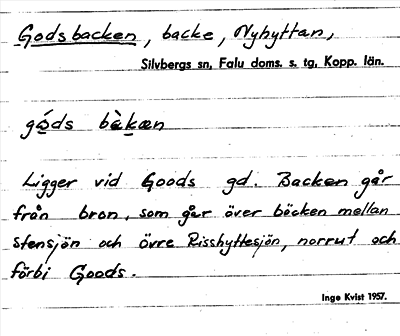 Godsbacken, backe, Nyhyttan,
Silvbergs sn, Falu doms. s. tg, Kopp. län.
gó̲ds bàk̲æn
Ligger vid Goods gd. Backen går
från bron, som går över bäcken mellan
Stensjön och övre Risshyttesjön, norrut och
förbi Goods.
Inge Kvist 1957.